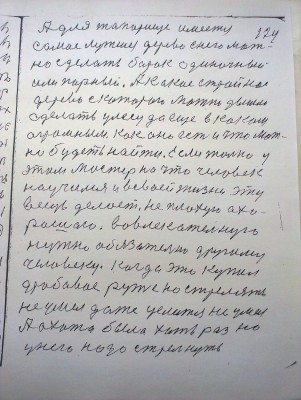 124
А для топорище имеету
самое лутшее дерево с него мож-
но сделать борок одиночный
или парный. А какое стройное
дерево с которого можно
сделать да еще в каком
огромным. Как оно гст и что мож-
но будеть найти. Если только у
этом мостер на что человек
научился и всвоей жизни эту
вещь делоет. не плохую ахо-
рошого.
нужно обязательно другому
человеку. Когда это купил
дробавое руже но стрелять
не умел даже целится не умел
А охота была хоть раз но
у него надо стрелнуть